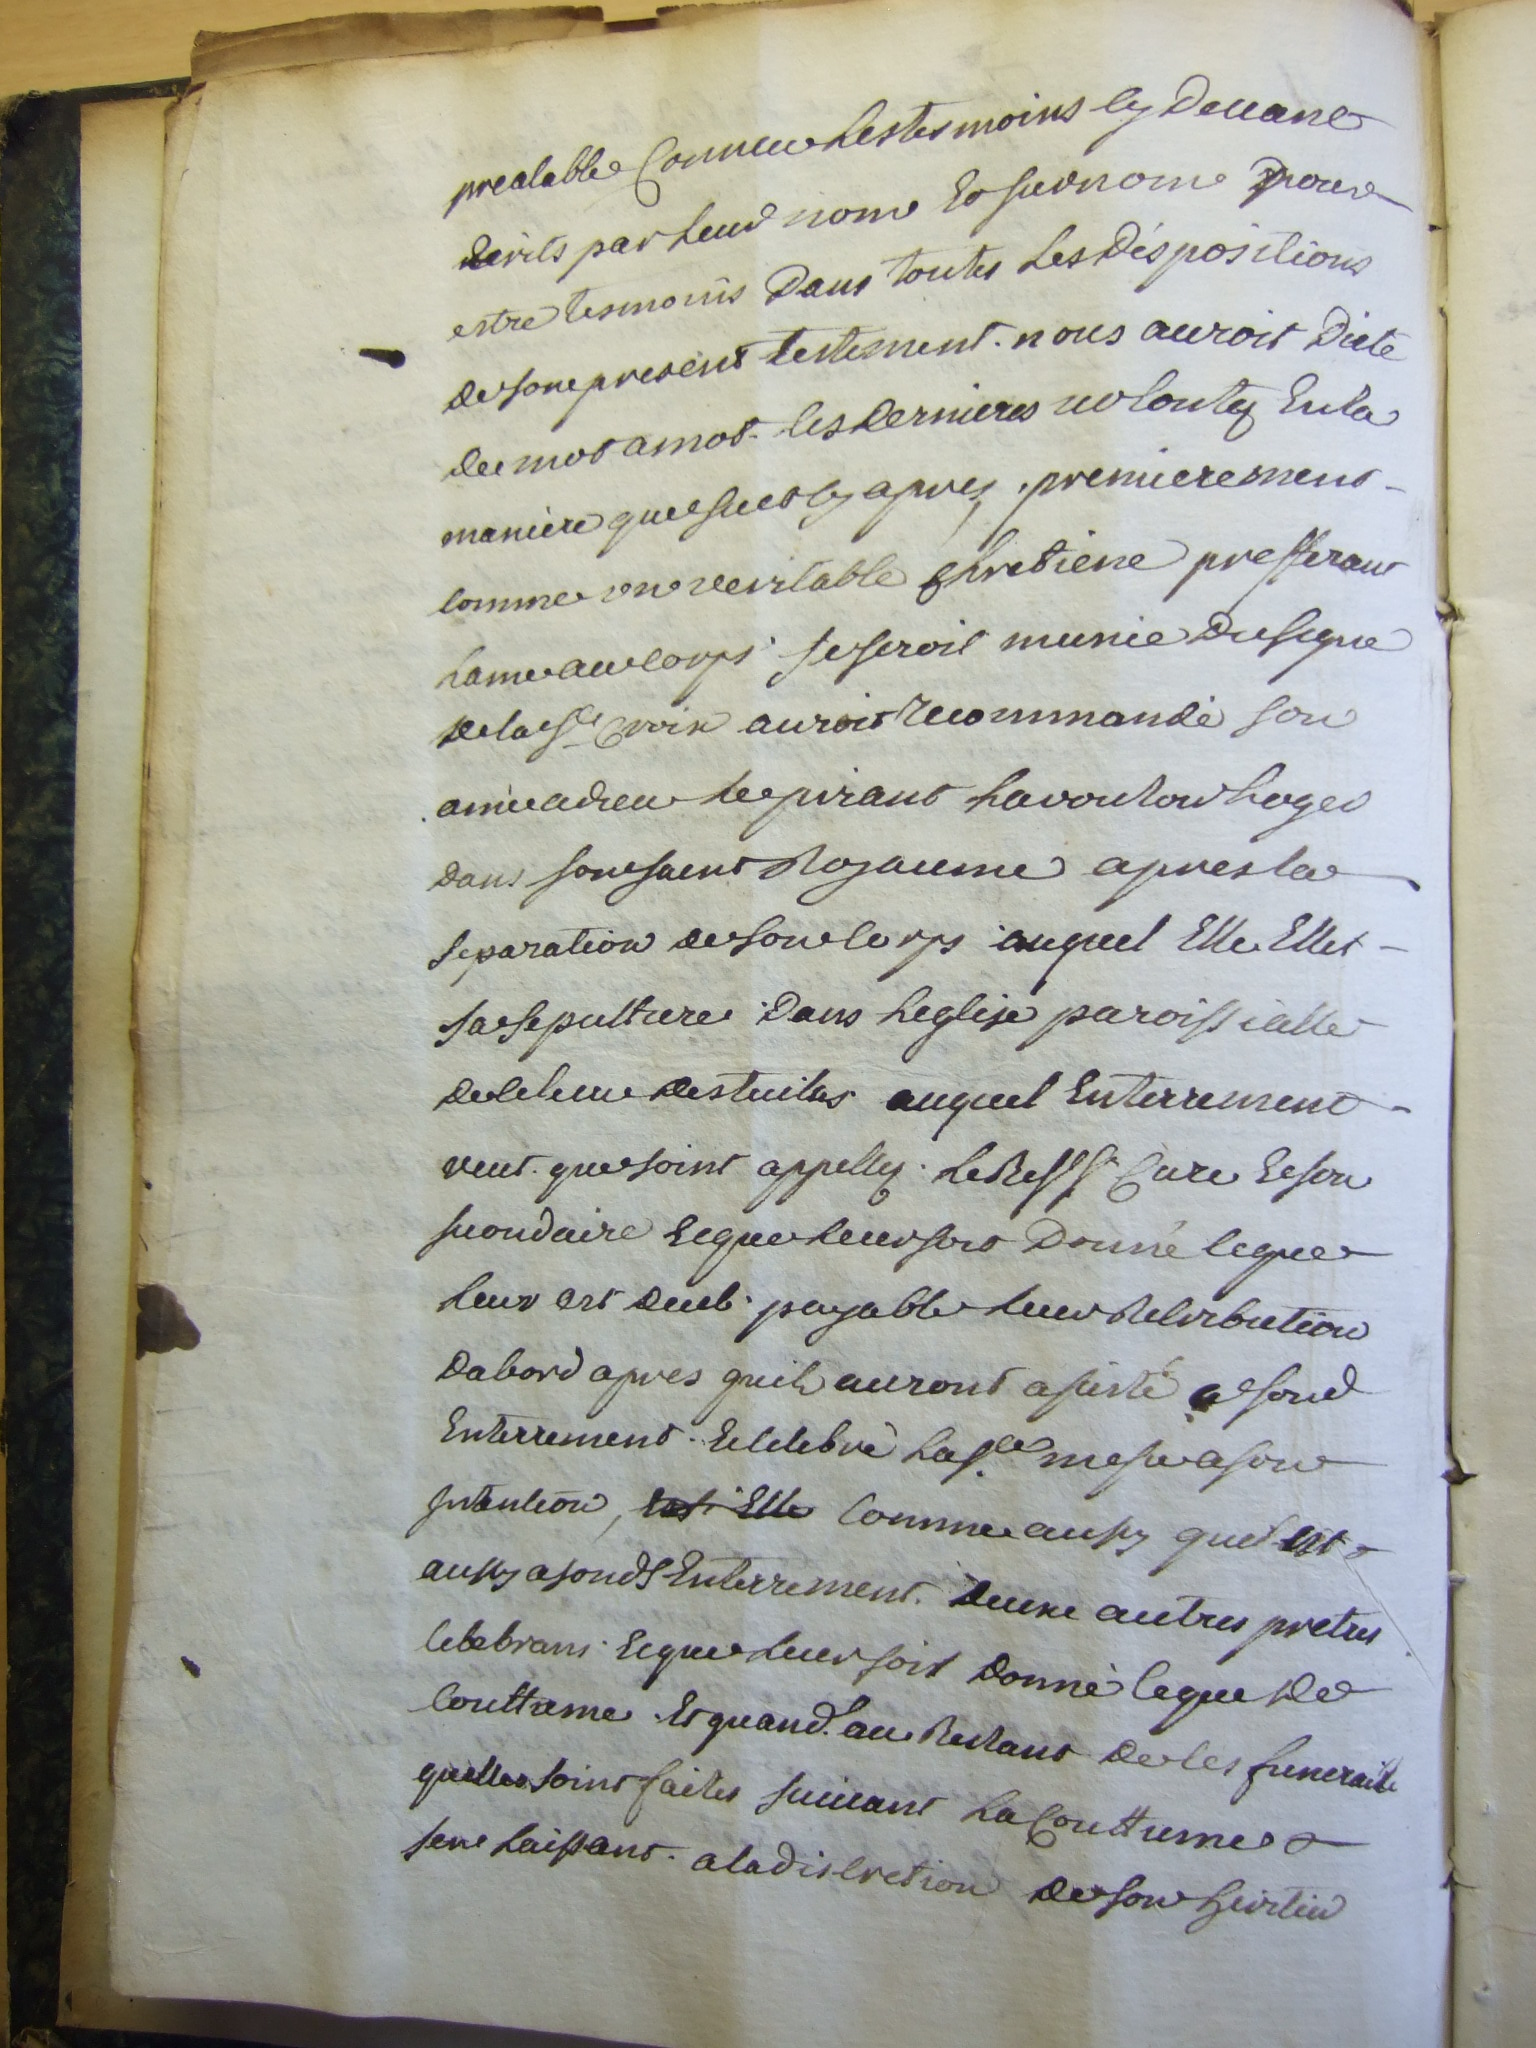 prealable Conneu les tesmoins cy Devant
Ecrits par leur nom Et surnom pour
estre tesmoins Dans toutes les Dispositions
de son present testement. nous auroit Dicté
de mot a mot les dernieres volontes En la
maniere que suit cy apres, premierement -
comme une veritable chretiene prefferant
lame au corps se seroit munie Du signe
de la Ste Croix auroit recommandé son
ame a dieu le priant la vouloir loger
Dans son saint Royaume apres la
separation de son corps auquel Elle Ellit -
sa sepulture Dans leglise paroissialle
de auquel Enterrement -
veut que soint appelles le Rd Sr Curé Et son
secondaire Et que leur soit Donné ce que
leur est deub payable leur Retribution
Dabord apres quils auront asisté a sond
Enterrement Et celebré la Ste messe a son
Intention, comme aussy quil est
aussy a sond Enterrement. Deux autres pretres
celebrans Et que leur soit Donné ce que de
Couttume Et quand au Restant de ces funerailles
quelles soint faites suivant la Couttume
sen laissant a la discretion de son heritier